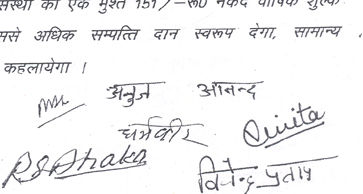 संस्था को एक मुश्त 151/-रू0 नकद वार्षिक शुल्क
ससे अधिक सम्पत्ति दान स्वरूप देगा, सामान्य
कहलायेगा ।
अनुज आनन्द
धर्मवीर Sunita
RSDhaka विरेन्द्र प्रताप